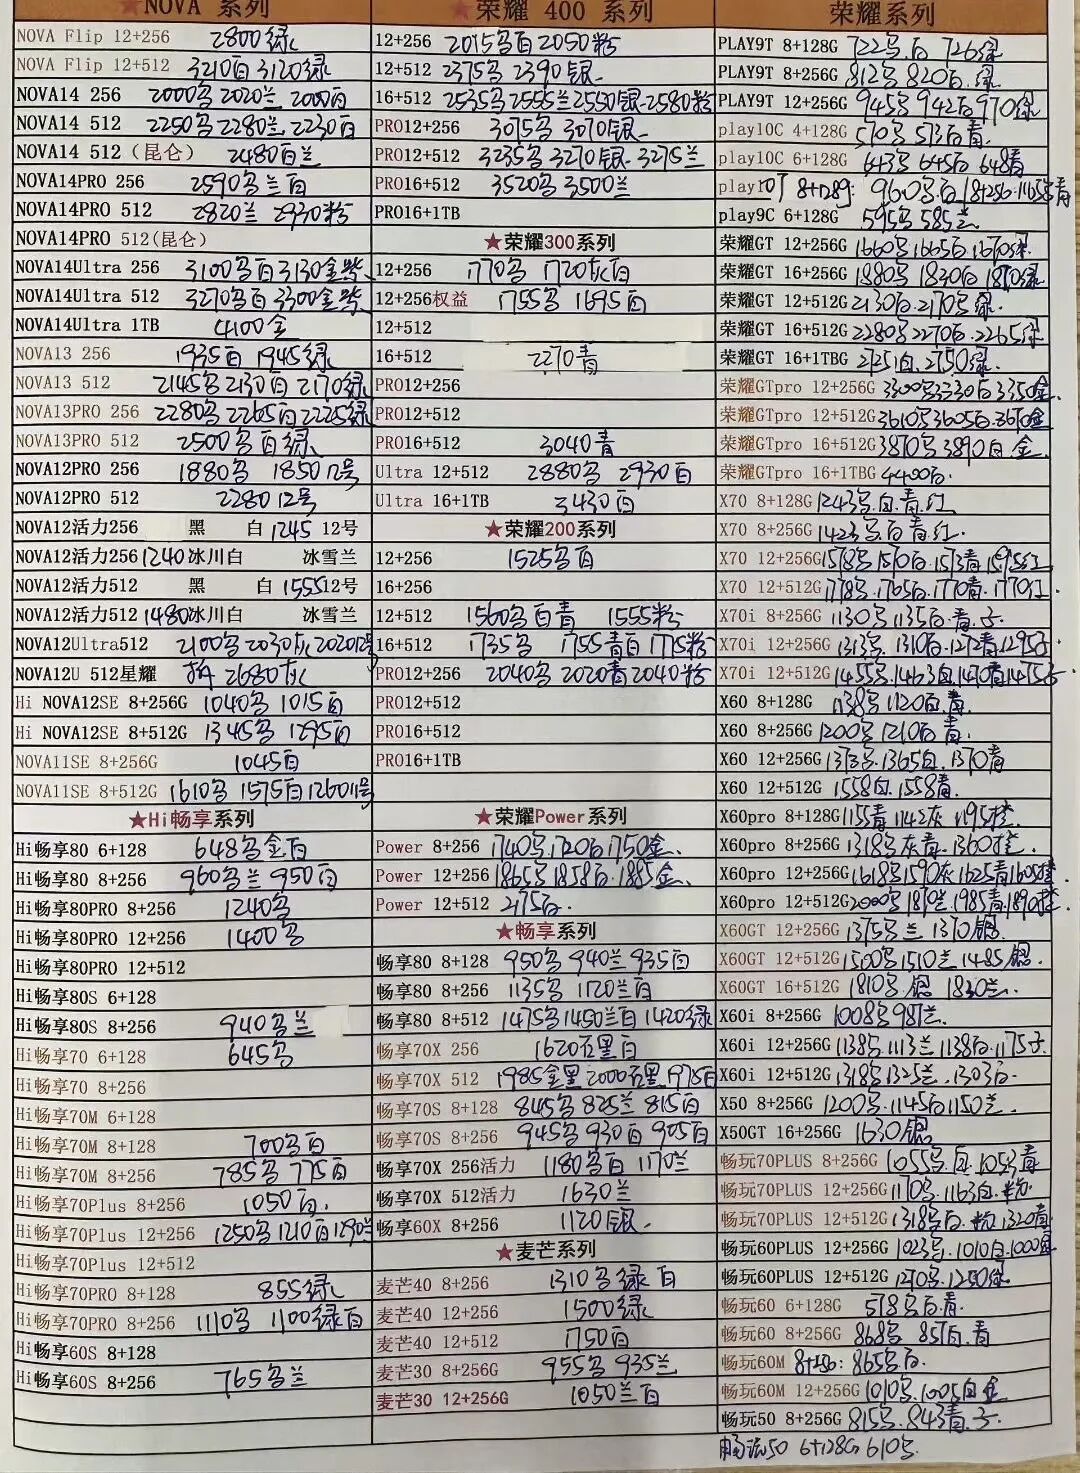 ★NOVA 系列
NOVA Flip 12+256 2800绿
NOVA Flip 12+512 3210白 3120绿
NOVA14 256 2000多 2020兰 2000白
NOVA14 512 2250多 2280兰 2230白
NOVA14 512(昆仑) 2480白兰
NOVA14PRO 256 2590多兰白
NOVA14PRO 512 2820兰 2930粉
NOVA14PRO 512(昆仑)
NOVA14Ultra 256 3100多白 3130金紫
NOVA14Ultra 512 3270多白 3300金紫
NOVA14Ultra 1TB 4100金
NOVA13 256 1935白 1945绿
NOVA13 512 2145多 2130白 2170绿
NOVA13PRO 256 2280多 2265白 2225绿
NOVA13PRO 512 2500多白绿
NOVA12PRO 256 1880多 1850 12号
NOVA12PRO 512 2280 12号
NOVA12活力256 黑 白 1245 12号
NOVA12活力256 1240 冰川白 冰雪兰
NOVA12活力512 黑 白 1555 12号
NOVA12活力512 1480 冰川白 冰雪兰
NOVA12Ultra512 2100多 2030灰 2020 12号
NOVA12U 512星耀 2680灰
Hi NOVA12SE 8+256G 1040多 1015白
Hi NOVA12SE 8+512G 1345多 1295白
NOVA11SE 8+256G 1045白
NOVA11SE 8+512G 1610多 1575白 1260 11号
★Hi畅享系列
Hi畅享80 6+128 648多金白
Hi畅享80 8+256 960多兰 950白
Hi畅享80PRO 8+256 1240多
Hi畅享80PRO 12+256 1400多
Hi畅享80PRO 12+512
Hi畅享80S 6+128
Hi畅享80S 8+256 940多兰
Hi畅享70 6+128 645多
Hi畅享70 8+256
Hi畅享70M 6+128
Hi畅享70M 8+128 700多白
Hi畅享70M 8+256 785多 775白
Hi畅享70Plus 8+256 1050白.
Hi畅享70Plus 12+256 1250多 1210白 1290兰
Hi畅享70Plus 12+512
Hi畅享70PRO 8+128 855绿
Hi畅享70PRO 8+256 1110多 1100绿白
Hi畅享60S 8+128
Hi畅享60S 8+256 765多兰
★荣耀 400 系列
12+256 2015多白 2050粉
12+512 2375多 2390银
16+512 2535多 2555兰 2550银 2580粉
PRO12+256 3075多 3070银
PRO12+512 3235多 3270银 3275兰
PRO16+512 3520多 3500兰
PRO16+1TB
★荣耀300系列
12+256 1770多 1720灰白
12+256权益 1755多 1695白
12+512
16+512 2270青
PRO12+256
PRO12+512
PRO16+512 3040青
Ultra 12+512 2880多 2930白
Ultra 16+1TB 3430白
★荣耀200系列
12+256 1525多白
16+256
12+512 1560多白青 1555粉
16+512 1735多 1755青白 1715粉
PRO12+256 2040多 2020青 2040粉
PRO12+512
PRO16+512
PRO16+1TB
★荣耀Power系列
Power 8+256 1740多. 1720白 1750金.
Power 12+256 1865多 1858白. 1885金.
Power 12+512 2175白.
★畅享系列
畅享80 8+128 950多 940兰 935白
畅享80 8+256 1135多 1120兰白
畅享80 8+512 1475多 1450兰白 1420绿
畅享70X 256 1620云黑白
畅享70X 512 1985金黑 2000云黑 1975白
畅享70S 8+128 845多 825兰 815白
畅享70S 8+256 945多 930白 905白
畅享70X 256活力 1180多白 1170兰
畅享70X 512活力 1630兰
畅享60X 8+256 1120银.
★麦芒系列
麦芒40 8+256 1310多绿白
麦芒40 12+256 1500绿
麦芒40 12+512 1750白
麦芒30 8+256G 955多 935兰
麦芒30 12+256G 1050兰白
荣耀系列
PLAY9T 8+128G 722多.白 726绿
PLAY9T 8+256G 812多 820白.绿
PLAY9T 12+256G 945多 942白 970绿
play10C 4+128G 570多 573白青.
play10C 6+128G 643多 645白 648青
play10T 8+128g: 960多.白 18+256·1165多青
play9C 6+128G 595多 585兰.
荣耀GT 12+256G 1660多 1665白 1670绿
荣耀GT 16+256G 1880多 1830白 1870绿
荣耀GT 12+512G 2130白.2170多.绿
荣耀GT 16+512G 2280多 2270白.2265绿
荣耀GT 16+1TBG 2725白.2750绿.
荣耀GTpro 12+256G 3300多3330白3350金.
荣耀GTpro 12+512G 3610多3605白.3670金
荣耀GTpro 16+512G 3870多 3890白.金.
荣耀GTpro 16+1TBG 4400白.
X70 8+128G 1243多.白.青.红
X70 8+256G 1423多.白青.红.
X70 12+256G 1578多.1570白.1573青.1595红
X70 12+512G 1778多.1765白.1770青.1770红.
X70i 8+256G 1130多.1135白.青.子
X70i 12+256G 1313多.1310白.1272青.1295子
X70i 12+512G 1455多.1463白.1470青1475子.
X60 8+128G 1138多.1120白.青.
X60 8+256G 1200多.1210白青.
X60 12+256G 1373多.1365白.1370青
X60 12+512G 1558白.1558青.
X60pro 8+128G 1155青 1142灰 1195橙
X60pro 8+256G 1318多灰青.1360橙.
X60pro 12+256G 1618多1590灰1625青1605橙
X60pro 12+512G 2000多1870兰1985青1890橙
X60GT 12+256G 1375多兰 1370银.
X60GT 12+512G 1500多1510兰1485银.
X60GT 16+512G 1810多.银.1830兰.
X60i 8+256G 1008多987兰.
X60i 12+256G 1138多.1113兰 1138白.1175子.
X60i 12+512G 1318多1325兰.1303白.
X50 8+256G 1200多.1145白1150兰.
X50GT 16+256G 1630银
畅玩70PLUS 8+256G 1055多.白.1053青
畅玩70PLUS 12+256G 1170多.1163白.粉
畅玩70PLUS 12+512G 1318多白.粉1320青
畅玩60PLUS 12+256G 1023多.1010白.1000绿
畅玩60PLUS 12+512G 1270多.1250绿
畅玩60 6+128G 578多白青.
畅玩60 8+256G 868多 857白.青
畅玩60M 8+256: 865多白.
畅玩60M 12+256G 1010多.1005白金
畅玩50 8+256G 815多.843青.子
畅玩50 6+128G 610多.